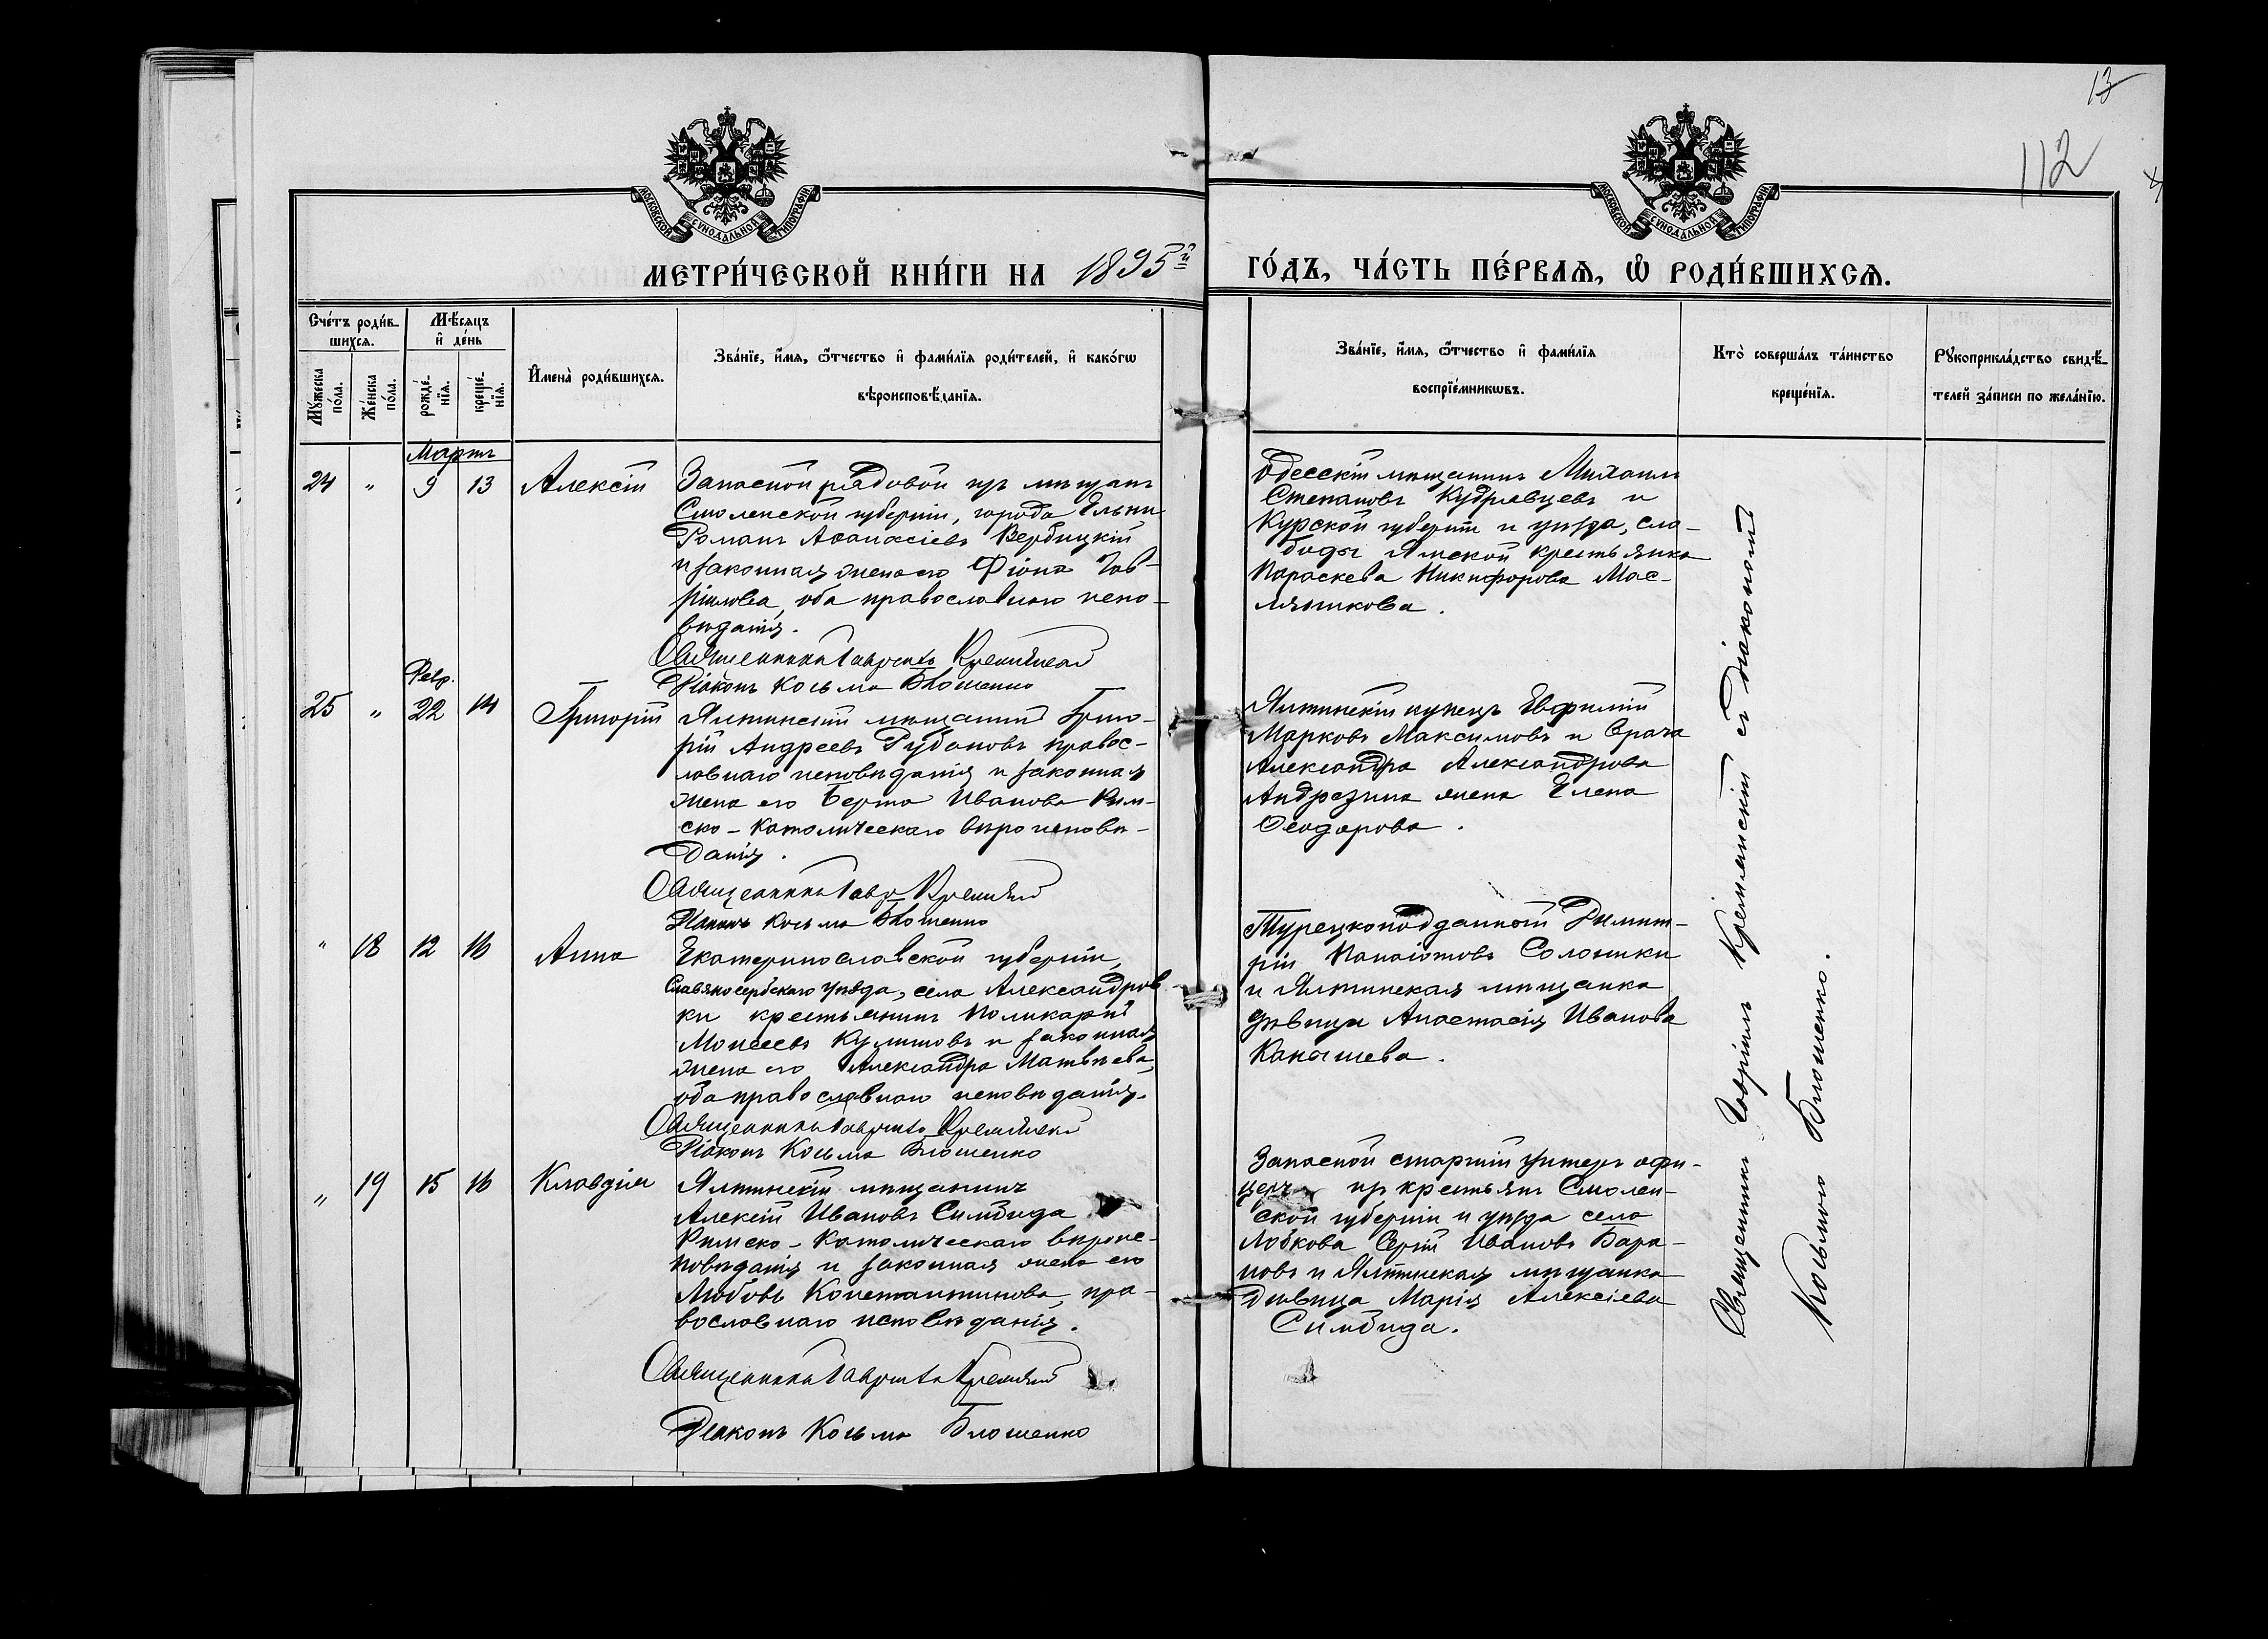 13
112
МОСКОВСКОЙ СѴНОДАЛЬНОЙ ТИПОГРАФІИ
МОСКОВСКОЙ СѴНОДАЛЬНОЙ ТИПОГРАФІИ
МЕТРИ́ЧЕСКОЙ КНИ́ГИ НА 1895й ГО́ДЪ, ЧА́СТЬ ПЕ́РВАЯ, Ѿ РОДИ́ВШИХСЯ.
Сче́тъ роди́в-
шихся.
Мѣ́сяцъ
и де́нь
Мꙋ́жеска
по́ла.
Же́нска
по́ла.
рожде́-
нїя.
креще́-
нїя.
И҆мена̀ роди́вшихся.
Зва́нїе, и҆́мя, ѻ҆́тчество и҆ фами́лїя роди́телей, и҆ како́гѡ
вѣроисповѣ́данїя.
Зва́нїе, и҆́мя, ѻ҆́тчество и҆ фами́лїя
воспрїе́мникѡвъ.
Кто̀ соверша́лъ та́инство
креще́нїя.
Рꙋкоприкла́дство свидѣ́-
телей за́писи по жела́нїю.
Мартъ
24 " 9 13 Алексій
Запасной рядовой изъ мѣщанъ
Смоленской губерніи, города Ельни
Романъ Аѳанасіевъ Вербицкій
и законная жена его Фіона Гав-
ріилова, оба православнаго испо-
вѣданія.
Священникъ Гавріилъ Кремянскій
Діаконъ Косьма Блошенко
Одесскій мѣщанинъ Михаилъ
Степановъ Кудрявцевъ и
Курской губерніи и уѣзда, сло-
боды Ямской крестьянка
Параскева Никифорова Мас-
лянникова.
Февр.
25 " 22 14 Григорій
Ялтинскій мѣщанинъ Григо-
рій Андреевъ Рубановъ правос-
лавнаго исповѣданія и законная
жена его Берта Иванова Рим-
ско-Католическаго вѣроисповѣ-
данія.
Священникъ Гавр. Кремянскій
Діаконъ Косьма Блошенко
Ялтинскій купецъ Евфимій
Марковъ Максимовъ и Врача
Александра Александрова
жена Елена
Ѳеодорова.
" 18 12 16 Анна
Екатеринославской губерніи,
Славяносербскаго уѣзда, села Александров
ки крестьянинъ Поликарпъ
Моисеевъ и законная
жена его Александра Матвѣева,
оба православнаго исповѣданія.
Священникъ Гавріилъ Кремянскій
Діаконъ Косьма Блошенко
Турецкоподданный Димит-
рій Панаіотовъ Солоники
и Ялтинская мѣщанка
дѣвица Анастасія Иванова
Канышева.
" 19 15 16 Клавдія
Ялтинскій мѣщанинъ
Алексій Ивановъ Симбида
Римско-Католическаго вѣроис-
повѣданія и законная жена его
Любовь Константинова, пра-
вославнаго исповѣданія.
Священникъ Гавріилъ Кремянскій
Діаконъ Косьма Блошенко
Запасной старшій унтеръ офи-
церъ изъ крестьянъ Смолен-
ской губерніи и уѣзда села
Лобкова Сергій Ивановъ Бара-
новъ и Ялтинская мѣщанка
дѣвица Марія Алексіева
Симбида.
Священникъ Гавріилъ Кремянскій съ діакономъ
Косьмою Блошенко.